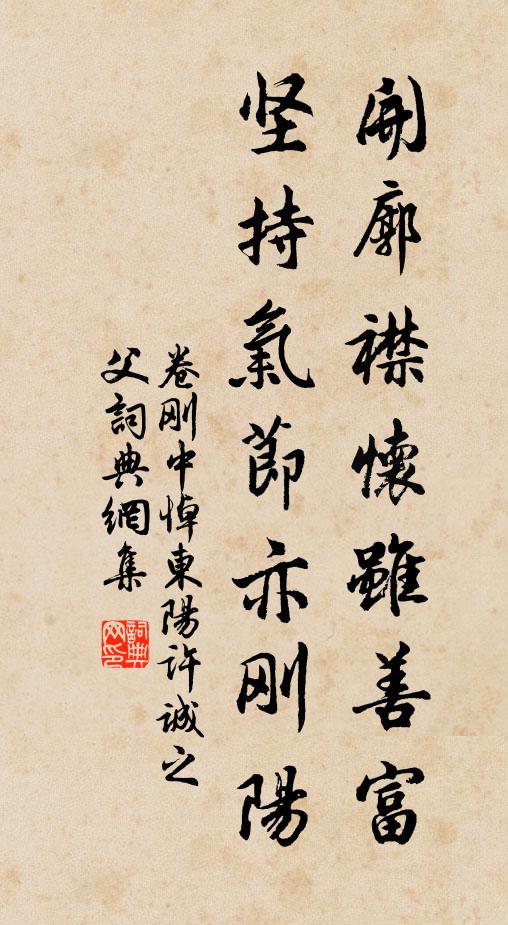 開廓襟懷雖善富
坚持氣節亦刚陽
卷刚中悼東陽許诚之
父詞典網集
詞典網印